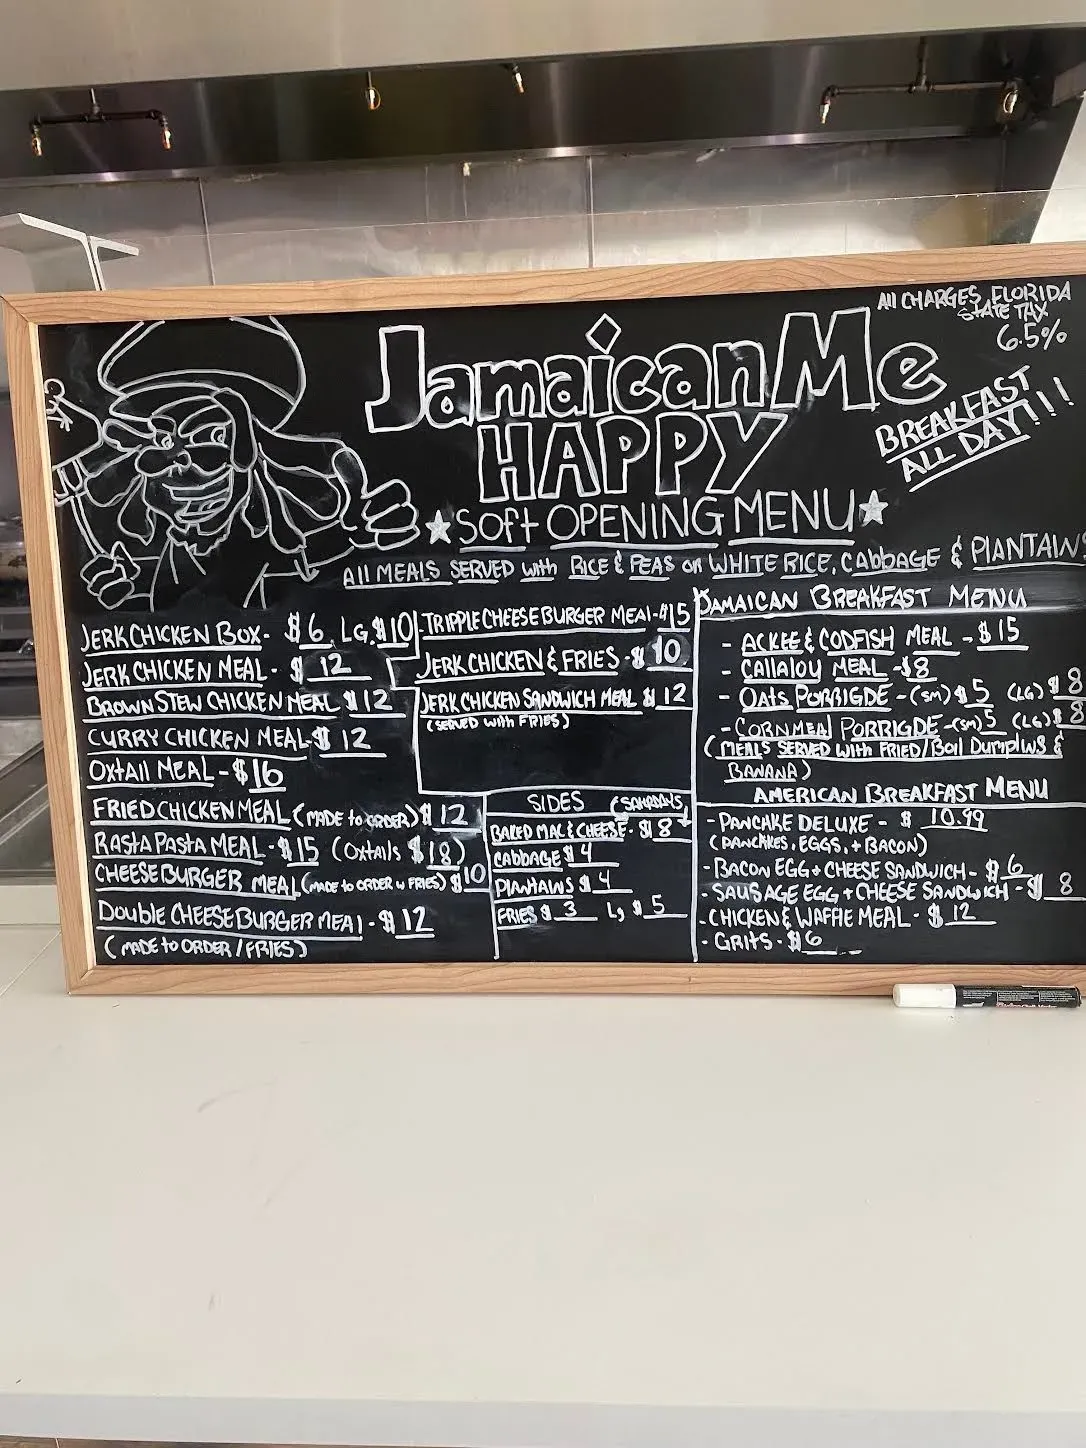 All CHARGES FLORIDA
STATE TAX
6.5%
Jamaican Me
HAPPY
BREAKFAST
ALL DAY!!!
SOft OPENING MENU
All MEALS SERVED with RICE & PEAS or WHITE RICE, CAbbAGE & PlANTAINS
JERK CHICKEN BOX- $6 LG. $10
JERK CHICKEN MEAL - $ 12
BROWN STEW CHICKEN MEAL $12
CURRY CHICKEN MEAL $ 12
OXtAIl MEAL - $16
FRIED CHICKEN MEAL (MADE to ORDER) $ 12
RASTA PASTA MEAL - $15 (Oxtails $18)
CHEESEBURGER MEAL (MADE to ORDER w FRIES) $10
DOUBLE CHEESEBURGER MEAl - $12
(MADE to ORDER / FRIES)
TRIPPLE CHEESE BURGER MEAl - $15
JERK CHICKEN & FRIES - $ 10
JERK CHICKEN SANDWICH MEAL $ 12
(SERVED with FRIES)
SIDES
BAKED MAC & CHEESE - $8
CAbbAGE $ 4
PlANtAINS $ 4
FRIES $ 3 Lg $5
JAMAICAN BREAKFAST MENU
- ACKEE & CODFISH MEAL - $15
- CAllAloy MEAL - $8
- OATS PORRIGDE - (SM) $5 (LG) $8
- CORNMEAl PORRIGDE - (SM) 5 (LG) $8
(MEALS SERVED with FRIED/Boil DUMPLINS &
BANANA)
AMERICAN BREAKFAST MENU
- PANCAKE DELUXE - $ 10.99
(PANCAKES, EGGS, + BACON)
- BACON EGG + CHEESE SANDWICH - $6
- SAUSAGE EGG + CHEESE SANDWICH - $ 8
- CHICKEN & WAFFlE MEAL - $12
- GRITS - $6